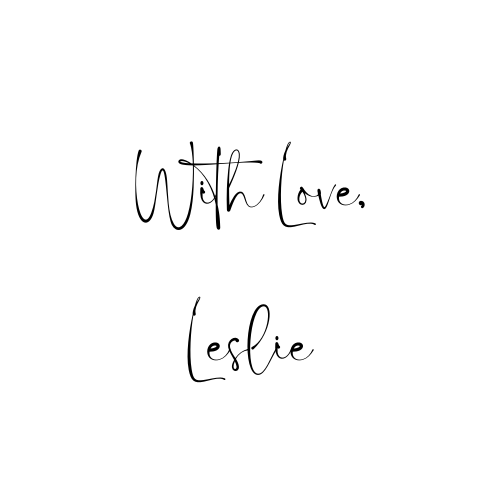 With Love,
Leslie